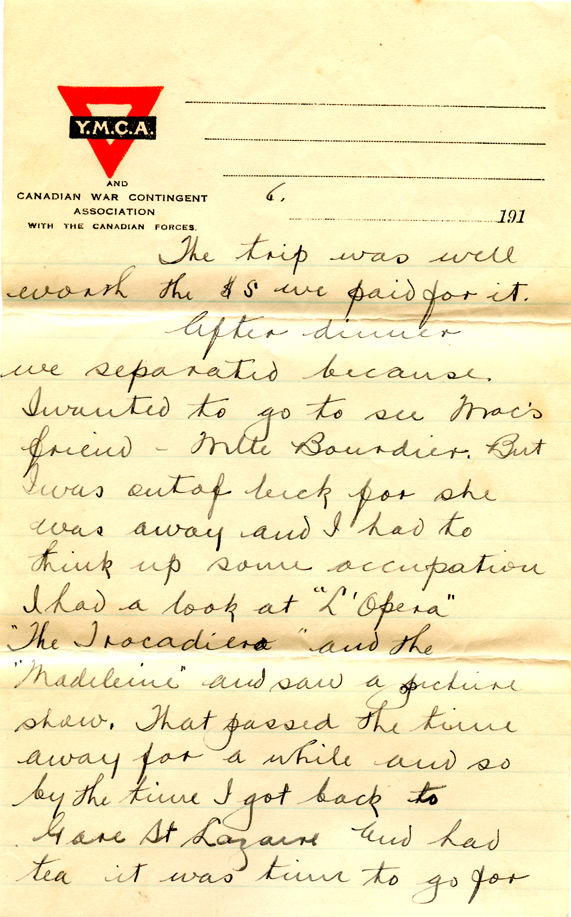 Y.M.C.A.
AND
CANADIAN WAR CONTINGENT
ASSOCIATION
WITH THE CANADIAN FORCES.
6.
191
The trip was well
worth the $5 we paid for it.
After dinner
we separated because
I wanted to go to see Mac's
friend - Mlle Bourdier. But
I was out of luck for she
was away and I had to
think up some occupation
I had a look at "L'Opera"
"The Trocadiero" and the
"Madeleine" and saw a picture
show. That passed the time
away for a while and so
by the time I got back to
Gare St Lazaire and had
tea it was time to go for